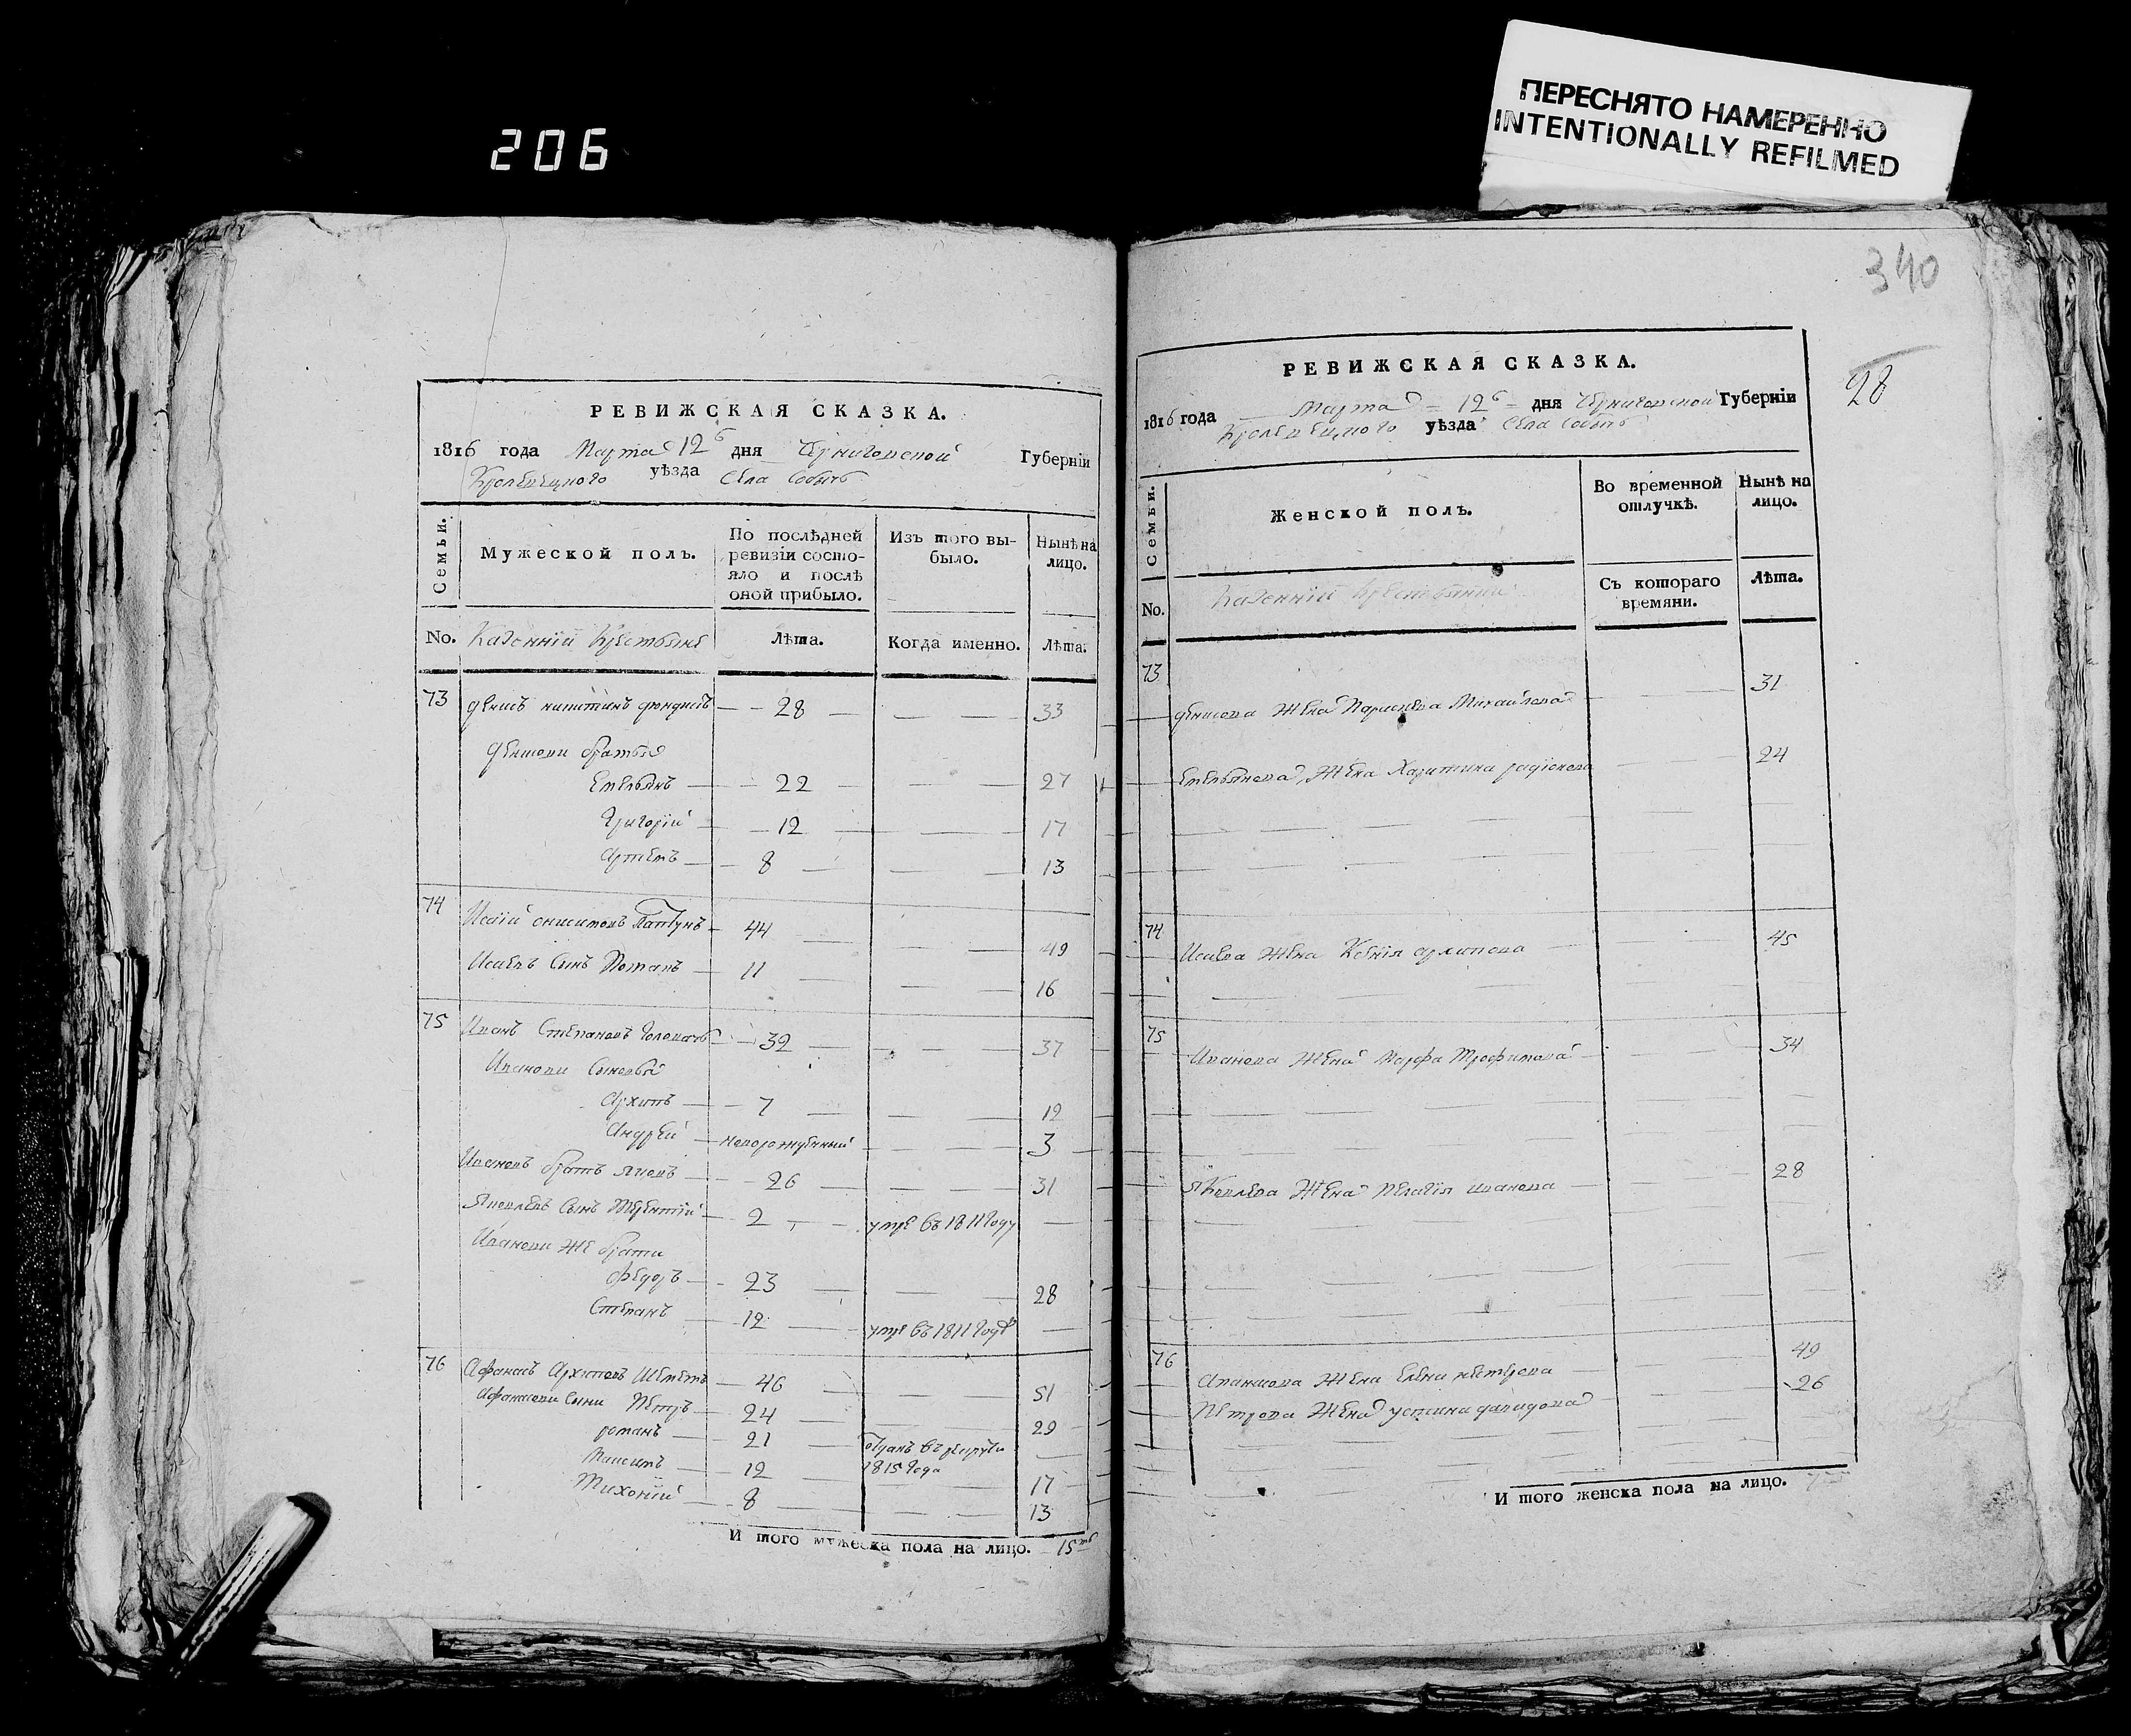 206
ПЕРЕСНЯТО НАМЕРЕННО
INTENTIONALLY REFILMED
РЕВИЖСКАЯ СКАЗКА.
1816 года Марта 12 дня Черниговской Губерніи
Кролевецкого уѣзда Села Собычь
Семьи.
Мужеской полъ.
По послѣдней ревизіи состояло и послѣ оной прибыло.
Изъ того выбыло.
Нынѣ на лицо.
No. Казенніи Крестьяне Лѣта. Когда именно. Лѣта.
73 Денисъ никитинъ 28 33
Денисови братья
Емельянъ 22 27
Григорій 12 17
Артемъ 8 13
74 Исаій 44 49
Исаевъ Сынъ Потапъ 11 16
75 Иванъ Степановъ 32 37
Иванови Сыновья
Архипъ 7 12
Андрей новорожденный 3
Ивановъ братъ Яковъ 26 31
Яковлевъ Сынъ Терентій 2 умре въ 1811 Году
Иванови же брати
Федоръ 23 28
Степанъ 12 умре въ 1811 Годѣ
76 Афанасъ Архиповъ 46 51
Афанасови Сыни Петръ 24 29
романъ 21 въ рекруты 1815 Года
Максимъ 12 17
Тихоній 8 13
И того мужеска пола на лицо. 15
340
28
РЕВИЖСКАЯ СКАЗКА.
1816 года Марта 12 дня Черниговской Губерніи
Кролевецкого уѣзда Села Собычь
Семьи.
Женской полъ.
Во временной отлучкѣ.
Нынѣ на лицо.
No. Казенніи Съ котораго времяни. Лѣта.
73
Денисова Жена Парасковя Михайлова 31
Емельянова Жена Харитина радіонова 24
74 Исаева Жена Ксенія архипова 45
75 Иванова Жена Марфа Трофимова 34
Яковлева Жена Пелагія иванова 28
76 Афанасова Жена Елена петрова 49
Петрова Жена устина давидова 26
И того женска пола на лицо.